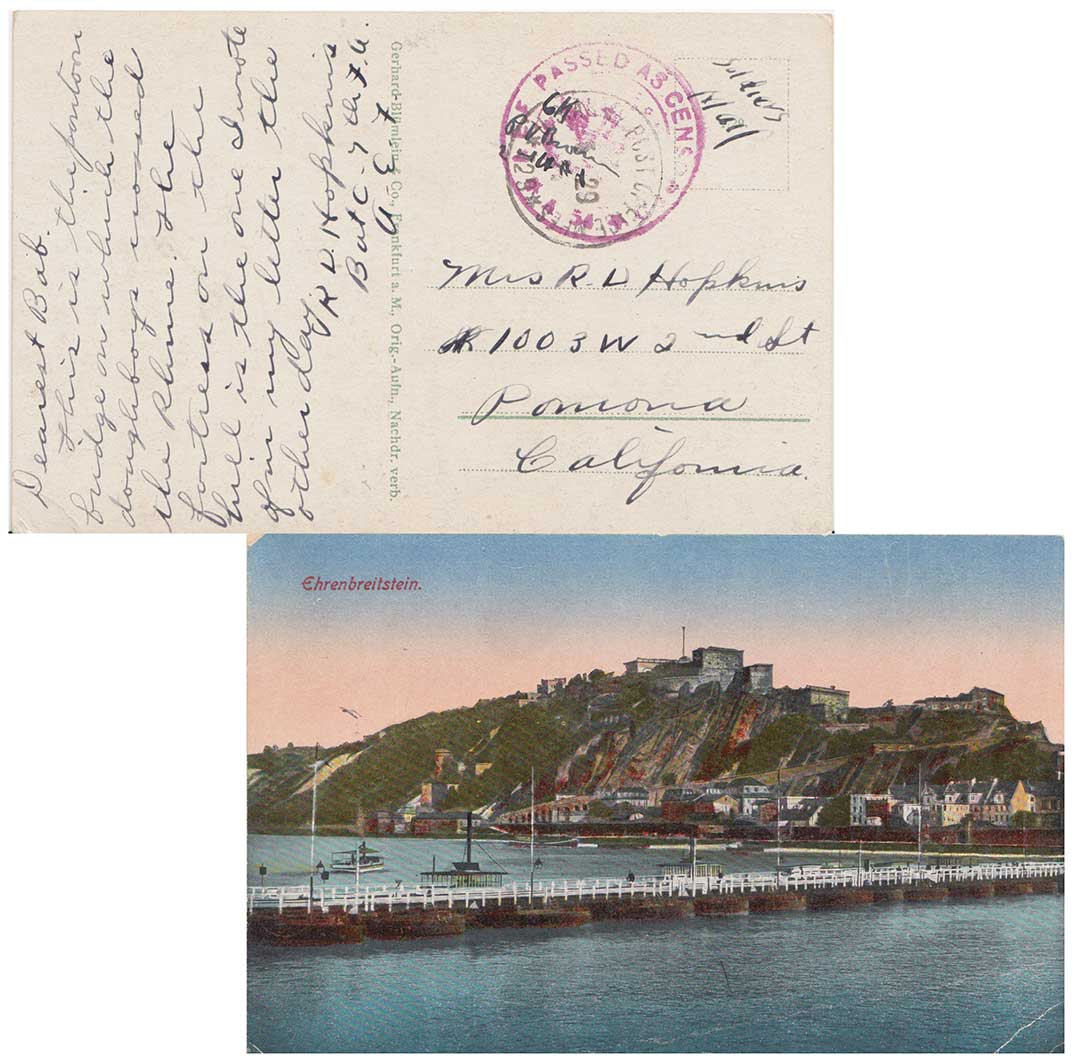 Dearest Bab.
This is the pontoon
bridge on which the
doughboys crossed
the Rhine. The
fortress on the
hill is the one I wrote
of in my letter the
other day
R D. Hopkins
Bat C - 7th F.A.
A E F
Gerhard Blümlein & Co., Frankfurt a. M., Orig.-Aufn., Nachdr. verb.
PASSED AS CENS
POST OFFICE
29
Soldier's
Mail
Mrs R. D Hopkins
1003 W 2nd St
Pomona
California.
Ehrenbreitstein.